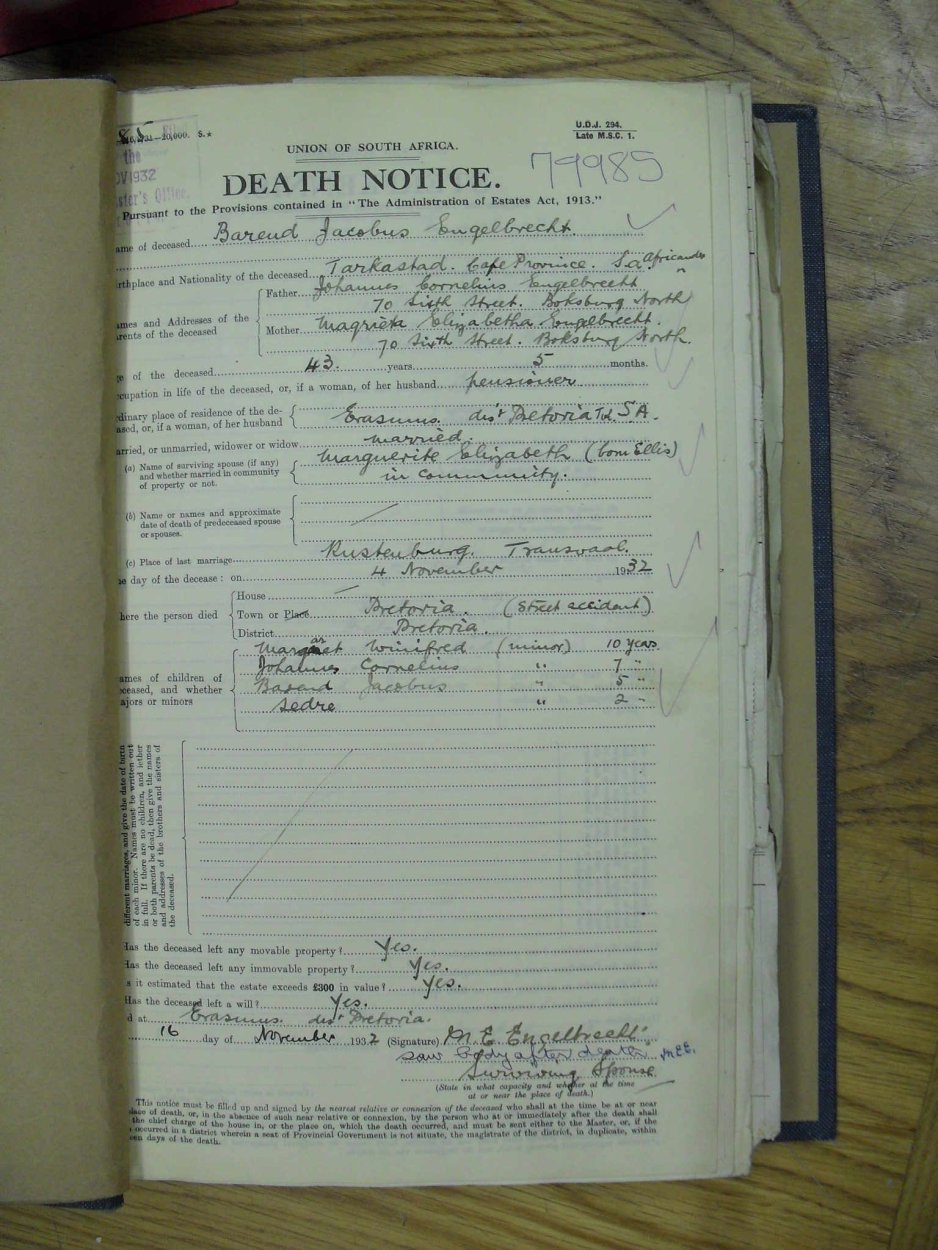 31—20,000. S.*
the
OV 1932
ster's Office.
U.D.J. 294.
Late M.S.C. 1.
UNION OF SOUTH AFRICA.
79985
DEATH NOTICE.
Pursuant to the Provisions contained in "The Administration of Estates Act, 1913."
ame of deceased Barend Jacobus Engelbrecht.
rthplace and Nationality of the deceased Tarkastad. Cape Province. S.a. Africander
ames and Addresses of the
rents of the deceased
Father Johannes Cornelius Engelbrecht "
70 Sixth Street. Boksburg North
Mother Magrieta Elizabetha Engelbrecht.
70 Sixth Street. Boksburg North.
e of the deceased 43. years 5 months.
cupation in life of the deceased, or, if a woman, of her husband pensioner
dinary place of residence of the de-
ased, or, if a woman, of her husband
Erasmus. dist Pretoria Tvl S A.
arried, or unmarried, widower or widow married.
(a) Name of surviving spouse (if any)
and whether married in community
of property or not.
Marguerite Elizabeth (born Ellis)
in community.
(b) Name or names and approximate
date of death of predeceased spouse
or spouses.
(c) Place of last marriage Rustenburg. Transvaal.
e day of the decease: on 4 November 1932
here the person died
House
Town or Place Pretoria. (Street accident)
District Pretoria.
ames of children of
eceased, and whether
ajors or minors
Margaret Winifred (minor) 10 years
Johannes Cornelius " 7 "
Barend Jacobus " 5 "
Sedre " 2 "
different marriages, and give the date of birth
of each minor. Names must be written out
in full. If there are no children, and either
or both parents be dead, then give the names
and addresses of the brothers and sisters of
the deceased.
Has the deceased left any movable property? Yes.
Has the deceased left any immovable property? Yes.
s it estimated that the estate exceeds £300 in value? Yes.
Has the deceased left a will? Yes.
d at Erasmus. dist Pretoria.
16 day of November 1932 (Signature) M E Engelbrecht.
saw body after death. MEE.
Surviving Spouse
(State in what capacity and whether at the time
at or near the place of death.)
This notice must be filled up and signed by the nearest relative or connexion of the deceased who shall at the time be at or near
lace of death, or, in the absence of such near relative or connexion, by the person who at or immediately after the death shall
the chief charge of the house in, or the place on, which the death occurred, and must be sent either to the Master, or, if the
occurred in a district wherein a seat of Provincial Government is not situate, the magistrate of the district, in duplicate, within
een days of the death.